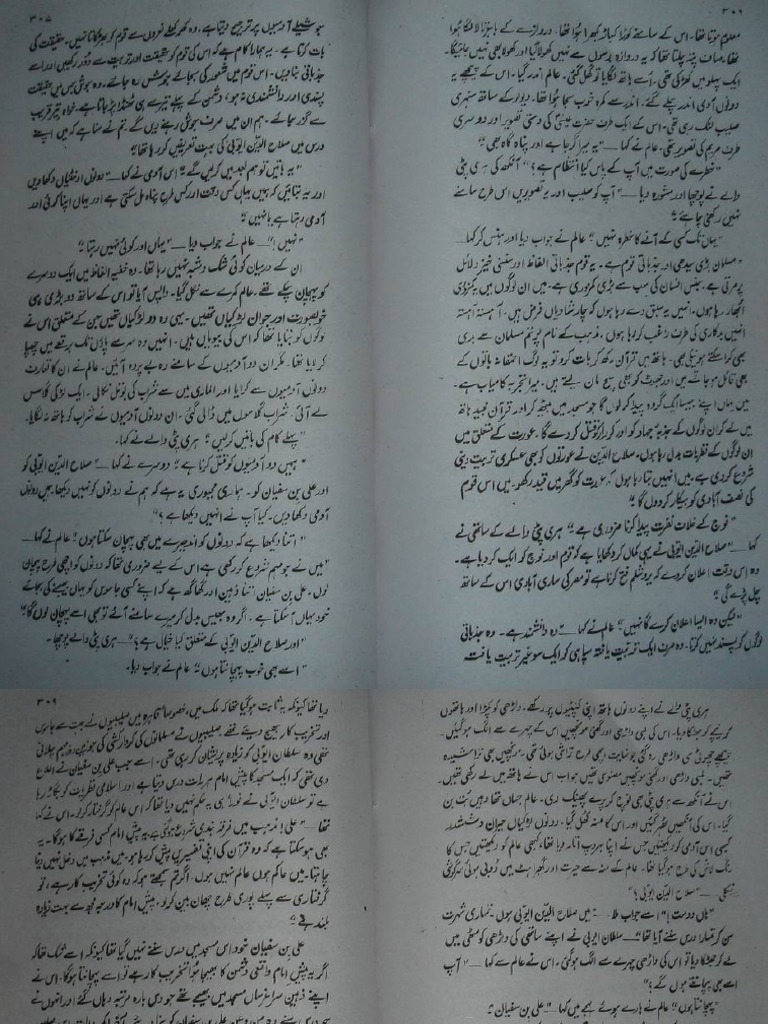 ۳۰۶
معلوم ہوتا تھا۔ اس کے سامنے کوڑا کباڑ بکھرا ہوا تھا۔ دروازے کے باہر تالا لگا ہوا
تھا۔ صاف پتہ چلتا تھا کہ یہ دروازہ برسوں سے نہیں کھولا گیا اور کھولا بھی نہیں جائیگا۔
ایک پہلو میں کھڑکی تھی۔ اُسے ہاتھ لگایا تو کھل گئی۔ عالم اندر گیا۔ اس کے پیچھے یہ
دونوں آدمی اندر چلے گئے۔ اندر سے کمرہ خوب سجا ہوا تھا۔ دیوار کے ساتھ سنہری
صلیب لٹک رہی تھی۔ اس کے ایک طرف حضرت عیسیٰ کی دستی تصویر اور دوسری
طرف مریم کی تصویر تھی۔ عالم نے کہا — "یہ میرا گرجا ہے اور پناہ گاہ بھی"
"خطرے کی صورت میں آپ کے پاس کیا انتظام ہے؟" آنکھ کی ہری پٹی
والے نے پوچھا اور مشورہ دیا — "آپ کو صلیب اور یہ تصویریں اس طرح سامنے
نہیں رکھنی چاہیئے"
"یہاں تک کسی کے آنے کا خطرہ نہیں" عالم نے جواب دیا اور ہنس کر کہا —
"مسلمان بڑی سیدھی اور جذباتی قوم ہے۔ یہ قوم جذباتی الفاظ اور سنسنی خیز دلائل
پر مرتی ہے۔ جنس انسان کی سب سے بڑی کمزوری ہے۔ میں ان لوگوں میں یہ کمزوری
ابھار رہا ہوں۔ انہیں یہ سبق دے رہا ہوں کہ چار شادیاں فرض ہیں۔ آہستہ آہستہ
انہیں بدکاری کی طرف راغب کر رہا ہوں۔ مذہب کے نام پر تم مسلمان سے بدی
بھی کرا سکتے ہو نیکی بھی۔ ہاتھ میں قرآن رکھ کر بات کرو تو یہ لوگ احمقانہ باتوں کے
بھی قائل ہو جاتے ہیں اور جھوٹ کو بھی سچ مان لیتے ہیں۔ میرا تجربہ کامیاب ہے۔
میں یہاں اپنے جیسا ایک گروہ پیدا کر لوں گا جو مسجد میں بیٹھ کر اور قرآن مجید ہاتھ
میں لے کر ان لوگوں کے جذبۂ جہاد کو اور کردار کو قتل کر دے گا۔ عورت کے متعلق میں
ان لوگوں کے نظریات بدل رہا ہوں۔ صلاح الدین نے عورتوں کو بھی عسکری تربیت دینی
شروع کر دی ہے۔ میں انہیں بتا رہا ہوں کہ عورت کو گھر میں قید رکھو۔ میں اس قوم
کی نصف آبادی کو بیکار کر دوں گا"
"فوج کے خلاف نفرت پیدا کرنا ضروری ہے" ہری پٹی والے کے ساتھی نے
کہا — "صلاح الدین ایوبی نے یہی کمال کر دکھایا ہے کہ قوم اور فوج کو ایک کر دیا ہے۔
وہ اس وقت اعلان کر دے کہ یروشلم فتح کرنا ہے تو مصر کی ساری آبادی اس کے ساتھ
چل پڑے گی"
"لیکن وہ ایسا اعلان کرے گا نہیں" عالم نے کہا — "وہ دانشمند ہے۔ وہ جذباتی
لوگوں کو پسند نہیں کرتا۔ وہ صرف ایک تربیت یافتہ سپاہی کو ایک سو غیر تربیت یافتہ
۳۰۷
جوشیلے آدمیوں پر ترجیح دیتا ہے۔ وہ کھوکھلے نعروں سے قوم کو بھڑکاتا نہیں۔ حقیقت کی
بات کرتا ہے۔ یہ ہمارا کام ہے کہ اس کی قوم کو حقیقت اور تربیت سے دُور رکھیں اور اسے
جذباتی بنا دیں۔ اس قوم میں شعور کی بجائے جوش رہ جائے۔ وہ جوش جس میں حقیقت
پسندی اور دانشمندی نہ ہو، دشمن کے پہلے تیر سے ہی ٹھنڈا پڑ جاتا ہے۔ خواہ تیر قریب
سے گزر جائے۔ ہم ان میں صرف جوش رہنے دیں گے۔ تم نے سنا ہے کہ میں اپنے
درس میں صلاح الدین ایوبی کی بہت تعریفیں کر رہا تھا"
"یہ باتیں تو ہم بعد میں کر لیں گے" اس آدمی نے کہا — "دونوں لڑکیاں دکھا دیں
اور یہ بتائیں کہ ہمیں یہاں کس وقت اور کس طرح پناہ مل سکتی ہے اور یہاں اپنا کوئی اور
آدمی رہتا ہے یا نہیں"
"نہیں!" — عالم نے جواب دیا — "یہاں اور کوئی نہیں رہتا"
ان کے درمیان کوئی شک و شبہ نہیں رہا تھا۔ وہ خفیہ الفاظ میں ایک دوسرے
کو پہچان چکے تھے۔ عالم کمرے سے نکل گیا۔ واپس آیا تو اس کے ساتھ دو بڑی ہی
خوبصورت اور جوان لڑکیاں تھیں۔ یہی وہ دو لڑکیاں تھیں جن کے متعلق اس نے
لوگوں کو بتایا تھا کہ اس کی بیویاں ہیں۔ انہیں وہ سر سے پاؤں تک برقعے میں چھپا
کر لایا تھا۔ مگر ان دو آدمیوں کے سامنے وہ بے پردہ آئیں۔ عالم نے ان کا تعارف
دونوں آدمیوں سے کرایا اور الماری میں سے شراب کی بوتل نکالی۔ ایک لڑکی گلاس
لے آئی۔ شراب گلاسوں میں ڈالی گئی۔ ان دونوں آدمیوں نے شراب کو ہاتھ نہ لگایا۔
"پہلے کام کی باتیں کر لیں" ہری پٹی والے نے کہا۔
"ہمیں دو آدمیوں کو قتل کرنا ہے" دوسرے نے کہا — "صلاح الدین ایوبی کو
اور علی بن سفیان کو۔ ہماری مجبوری یہ ہے کہ ہم نے دونوں کو نہیں دیکھا۔ ہمیں دونوں
آدمی دکھا دیں۔ کیا آپ نے انہیں دیکھا ہے؟"
"اتنا دیکھا ہے کہ دونوں کو اندھیرے میں بھی پہچان سکتا ہوں" عالم نے کہا —
"میں نے جو مہم شروع کر رکھی ہے اس کے لیے ضروری تھا کہ دونوں کو اچھی طرح پہچان
لوں۔ علی بن سفیان اتنا ذہین اور گھاگ ہے کہ اپنے کسی جاسوس کو یہاں بھیجنے کی بجائے
خود یہاں آ سکتا ہے۔ اگر وہ بھیس بدل کر میرے سامنے آئے تو بھی اسے پہچان لوں گا"
"اور صلاح الدین ایوبی کے متعلق کیا خیال ہے؟" — ہری پٹی والے نے پوچھا۔
"اسے بھی خوب پہچانتا ہوں" عالم نے جواب دیا۔
ہری پٹی والے نے اپنے دونوں ہاتھ اپنی کنپٹیوں پر رکھے۔ داڑھی کو پکڑا اور ہاتھوں
کو نیچے کو جھٹکا دیا۔ اس کی لمبی داڑھی اور گھنی مونچھیں اس کے چہرے سے الگ ہو گئیں۔
نیچے چھوٹی سی داڑھی رہ گئی جو نہایت اچھی طرح تراشی ہوئی تھی۔ مونچھیں بھی تراشیدہ
تھیں۔ لمبی داڑھی اور گھنی مونچھیں مصنوعی تھیں جو اب اس نے ہاتھ میں لے رکھی تھیں۔
اس نے آنکھ سے ہری پٹی بھی نوچ کر پرے پھینک دی۔ عالم جہاں تھا وہیں بُت بن
گیا۔ اس کی آنکھیں ٹھہر گئیں اور اس کا منہ کھل گیا۔ دونوں لڑکیاں حیران و ششدر
کبھی اس آدمی کو دیکھتیں جس نے اپنا بہروپ اتار دیا تھا، کبھی عالم کو دیکھتیں جس کا
رنگ لاش کی طرح ہو گیا تھا۔ عالم کے منہ سے حیرت اور گھبراہٹ میں ڈوبی ہوئی سرگوشی
نکلی — "صلاح الدین ایوبی؟"
"ہاں دوست!" اسے جواب ملا — "میں صلاح الدین ایوبی ہوں۔ تمہاری شہرت
سن کر تمہارا درس سننے آیا تھا" — سلطان ایوبی نے اپنے ساتھی کی داڑھی کو مٹھی میں
لے کر جھٹکا دیا تو اس کی داڑھی چہرے سے الگ ہو گئی۔ اس نے عالم سے کہا — "آپ
اسے بھی پہچانتے ہوں گے؟"
"پہچانتا ہوں" عالم نے ہارے ہوئے لہجے میں کہا — "علی بن سفیان"
۳۰۹
دیا تھا کیونکہ یہ ثابت ہو گیا تھا کہ ملک میں، خصوصاً قاہرہ میں صلیبیوں نے بہت سے جاسوس
اور تخریب کار بھیج دیئے تھے۔ صلیبیوں نے مسلمانوں کی کردار کشی کی جو زمین دوز مہم چلائی
تھی وہ سلطان ایوبی کو زیادہ پریشان کر رہی تھی۔ اسے جب علی بن سفیان نے اطلاع
دی تھی کہ ایک مسجد کا پیش امام ہر رات درس دیتا ہے اور اسلامی نظریات کو بگاڑ رہا
ہے تو سلطان ایوبی نے فوراً ہی یہ حکم نہیں دیا تھا کہ اس عالم کو گرفتار کر لو۔ اس نے کہا
تھا — "علی! مذہب میں فرقہ بندی شروع ہو گئی ہے۔ یہ پیش امام کسی فرقے کا ہوگا۔ یہ
بھی ہو سکتا ہے کہ وہ قرآن کی اپنی تفسیر پیش کر رہا ہو۔ میں مذہب میں دخل نہیں دینا
چاہتا۔ میں حاکم ہوں عالم نہیں ہوں۔ اگر تم سمجھتے ہو کہ وہ کوئی تخریب کار ہے، تو
گرفتاری سے پہلے پوری طرح چھان بین کر لو۔ پیش امام کا درجہ مجھ سے بہت زیادہ
بلند ہے"
علی بن سفیان خود اس مسجد میں درس سننے نہیں گیا تھا کیونکہ اسے شک تھا کہ
اگر یہ پیش امام واقعی دشمن کا بھیجا ہوا تخریب کار ہے تو اسے پہچانتا ہوگا۔ اس نے
اپنے ذہین سراغرساں مسجد میں بھیجے تھے جو دس بارہ مرتبہ وہاں گئے اور انہوں نے